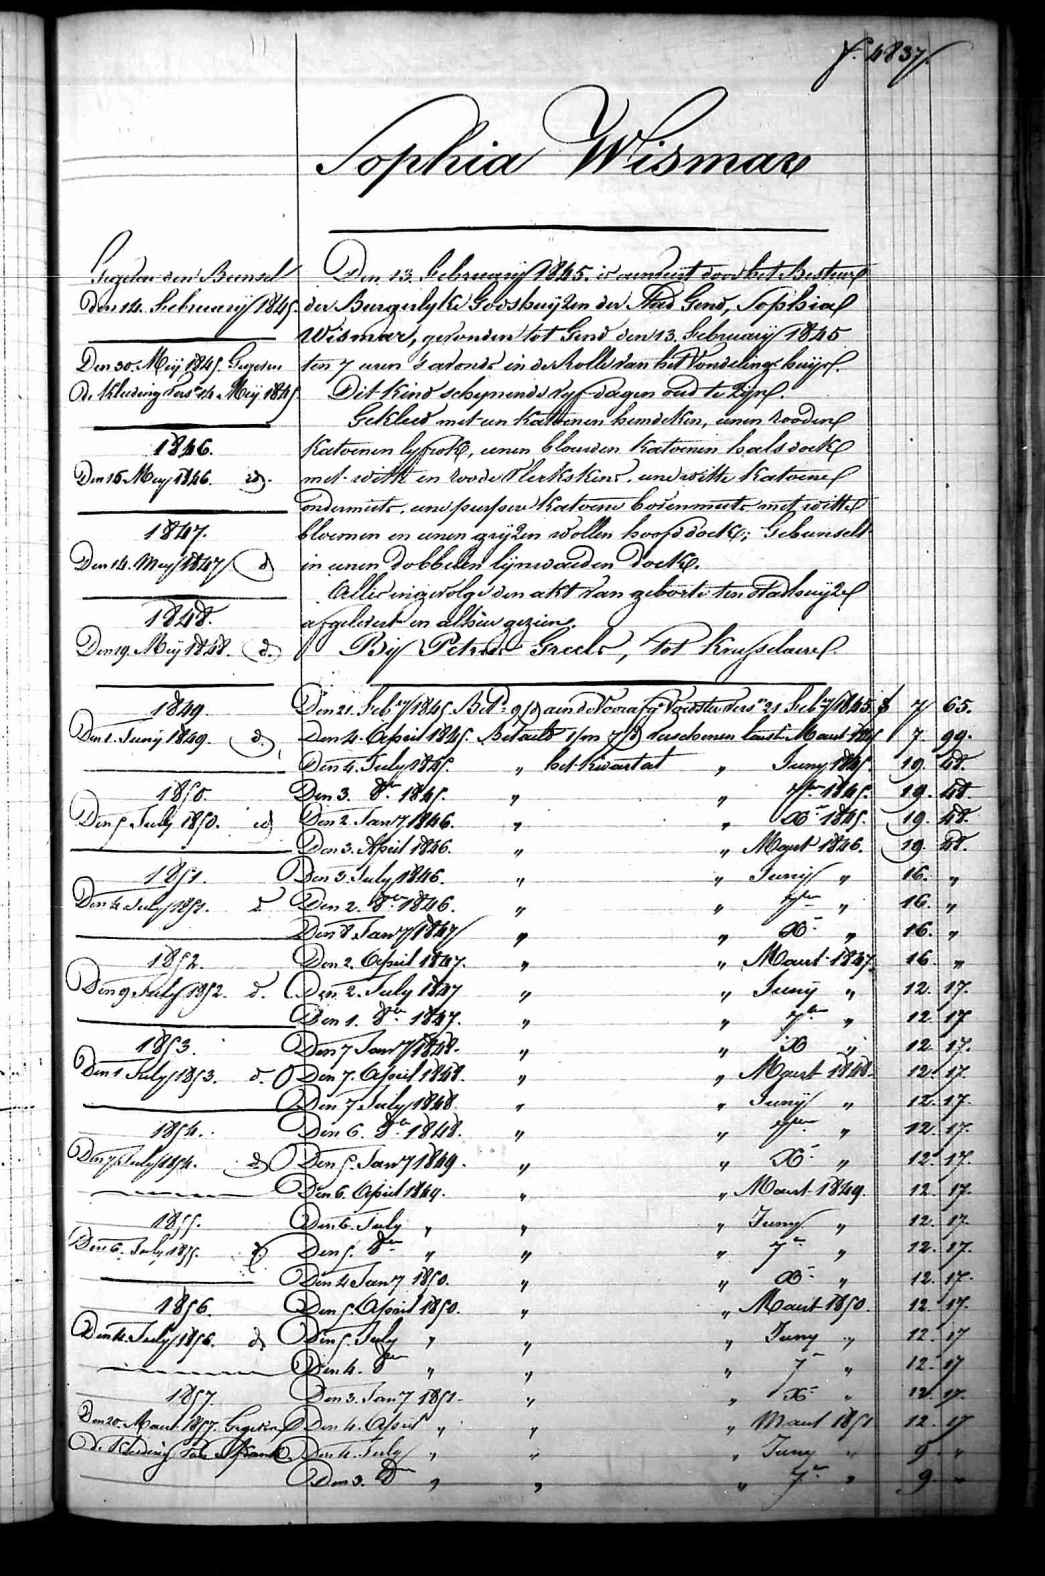 f. 4837.
Sophia Wismar
Gegeven den Bunsel
Den 14. February 1845.
Den 30. Meij 1845. Gegeven
De Kleeding Vers. 14 Meij 1845
1846.
Den 16. Mey 1846. id.
1847.
Den 14. Mey 1847 d
1848.
Den 19. Meij 1848. d.
1849.
Den 1. Junij 1849. d.
1850.
Den 5 July 1850. id
1851.
Den 4 July 1851. d.
1852.
Den 9 July 1852. d.
1853.
Den 1 July 1853. d.
1854.
Den 7 July 1854. d
1855.
Den 6. July 1855.
1856.
Den 4 July 1856. d
1857.
Den 20. Maart 1857. Gegeven
De Kleeding
Den 13. February 1845. is door het Bestuur
der Burgerlyke Godshuyzen der Stad Gend, Sophia
Wismar, gevonden tot Gend den 13. February 1845
ten 7 uren 's avonds in de Rolle van het Vondelinge huys.
Dit kind schynende vyf dagen oud te zyn.
Gekleed met een Katoenen hemdeken, eenen rooden
Katoenen lyfrok, eenen blauwen Katoenen halsdoek
met witte en roode Plekskens, eene witte Katoene
ondermuts, eene purpere Katoene bovenmuts met witte
bloemen en eenen gryzen wollen hoofddoek; Gebunselt
in eenen dobbelen lynwaeden doek.
Alles ingevolge den akt van geboorte ten stadhuyze
afgelevert en alhier gezien.
By Petrus, tot Knesselaere.
Den 21. Feb.ry 1845. Bet.d de Voedster Vers. 21 Feb.ry 1845. 7 65.
Den 4. April 1845. Betaelt verschenen Maart 1845 7. 99.
Den 4. July 1845. „ het Kwartael „ Juny 1845. 19. 48.
Den 3. 8br 1845. „ „ 7br 1845. 19. 48
Den 2 Janry 1846. „ „ Xr 1845. 19. 48.
Den 3. April 1846. „ „ Maart 1846. 19. 48.
Den 3. July 1846. „ „ Juny „ 16. „
Den 2. 8br 1846. „ „ 7br „ 16. „
Den 8 Janry 1847 „ „ Xr „ 16. „
Den 2. April 1847. „ „ Maart 1847. 16. „
Den 2. July 1847 „ „ Juny „ 12. 17.
Den 1. 8br 1847. „ „ 7br „ 12. 17
Den 7 Janry 1848. „ „ Xr „ 12. 17.
Den 7. April 1848. „ „ Maart 1848. 12. 17.
Den 7 July 1848 „ „ Junij „ 12. 17.
Den 6. 8br 1848. „ „ 7br „ 12. 17.
Den 5. Janry 1849. „ „ Xr „ 12. 17.
Den 6. April 1849. „ „ Maart 1849. 12. 17.
Den 6. July „ „ „ Juny „ 12. 17.
Den 5. 8br „ „ „ 7br „ 12. 17.
Den 4 Janry 1850. „ „ Xr „ 12. 17.
Den 5 April 1850. „ „ Maart 1850. 12. 17.
Den 5. July „ „ „ Juny „ 12. 17
Den 4. 8br „ „ „ 7br „ 12. 17
Den 3. Janry 1851. „ „ Xr „ 12. 17.
Den 4. April „ „ „ Maart 1851 12. 17
Den 4. July „ „ „ Juny „ 9. „
Den 3. 8br „ „ „ 7br „ 9. „